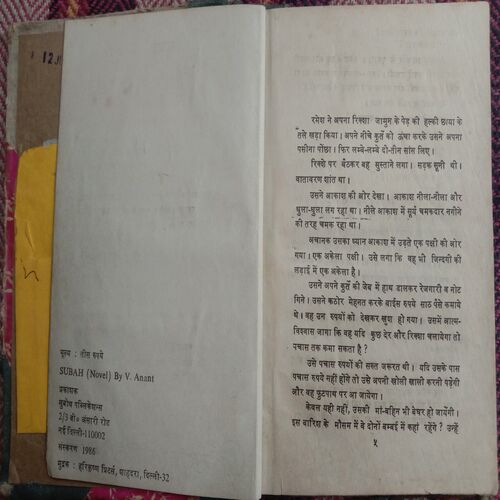 12
मूल्य : तीस रुपये
SUBAH (Novel) By V. Anant
प्रकाशक
सुबोध पब्लिकेशन्स
2/3 बी० अंसारी रोड
नई दिल्ली-110002
संस्करण 1986
मुद्रक : हरिकृष्ण प्रिंटर्स, शाहदरा, दिल्ली-32
रमेश ने अपना रिक्शा जामुन के पेड़ की हल्की छाया के
तले खड़ा किया। अपने नीचे कुर्ते को ऊंचा करके उसने अपना
पसीना पोंछा। फिर लम्बे-लम्बे दो-तीन सांस लिए।
रिक्शे पर बैठकर वह सुस्ताने लगा। सड़क सूनी थी।
वातावरण शांत था।
उसने आकाश की ओर देखा। आकाश नीला-नीला और
धुला-धुला लग रहा था। नीले आकाश में सूर्य चमकदार नगीने
की तरह चमक रहा था।
अचानक उसका ध्यान आकाश में उड़ते एक पक्षी की ओर
गया। एक अकेला पक्षी। उसे लगा कि वह भी जिन्दगी की
लड़ाई में एक अकेला है।
उसने अपने कुर्ते की जेब में हाथ डालकर रेजगारी व नोट
गिने। उसने कठोर मेहनत करके बाईस रुपये साठ पैसे कमाये
थे। वह उन रुपयों को देखकर खुश हो गया। उसमें आत्म-
विश्वास जागा कि वह यदि कुछ देर और रिक्शा चलायेगा तो
पचास तक कमा सकता है ?
उसे पचास रुपयों की सख्त जरूरत थी। यदि उसके पास
पचास रुपये नहीं होंगे तो उसे अपनी खोली खाली करनी पड़ेगी
और वह फुटपाथ पर आ जायेगा।
केवल यही नहीं, उसकी मां-बहिन भी बेघर हो जायेंगी।
इस बारिश के मौसम में वे दोनों बम्बई में कहां रहेंगे ? उन्हें
५